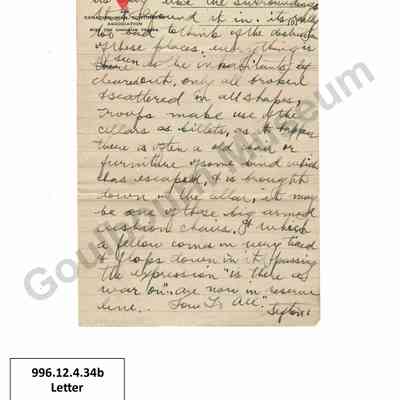 the surroundings
it in. its
CANADIAN WAR CONTINGENT
ASSOCIATION
WITH THE CANADIAN TROOPS
too bad to think of the
of those places, everything is
as the inhabitants
cleared out, only all broken
& scattered in all shapes,
Troops make use of the
cellars as billets, as it
there is often a old chair or
furniture of some kind which
has escaped, it is brought
down in the cellar, it may
be one of those big armed
cushion chairs. & when
a fellow comes in very tired
& flops down in it, passing
the expression "is there a
war on". are now in reserve
line. All."
Gouldbourn Museum
996.12.4.34b
Letter